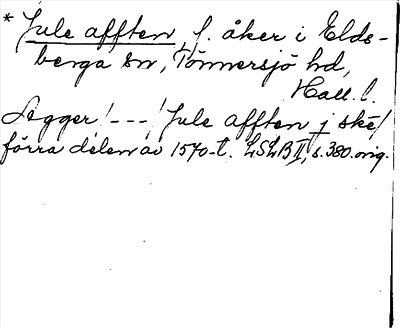 * Jule afften, f. åker i Elds-
berga sn, Tönnersjö hd,
Hall. l.
Ligger /---/ Jule afften j ske/
förra delen av 1570-t. LSLB II, s. 380. orig.